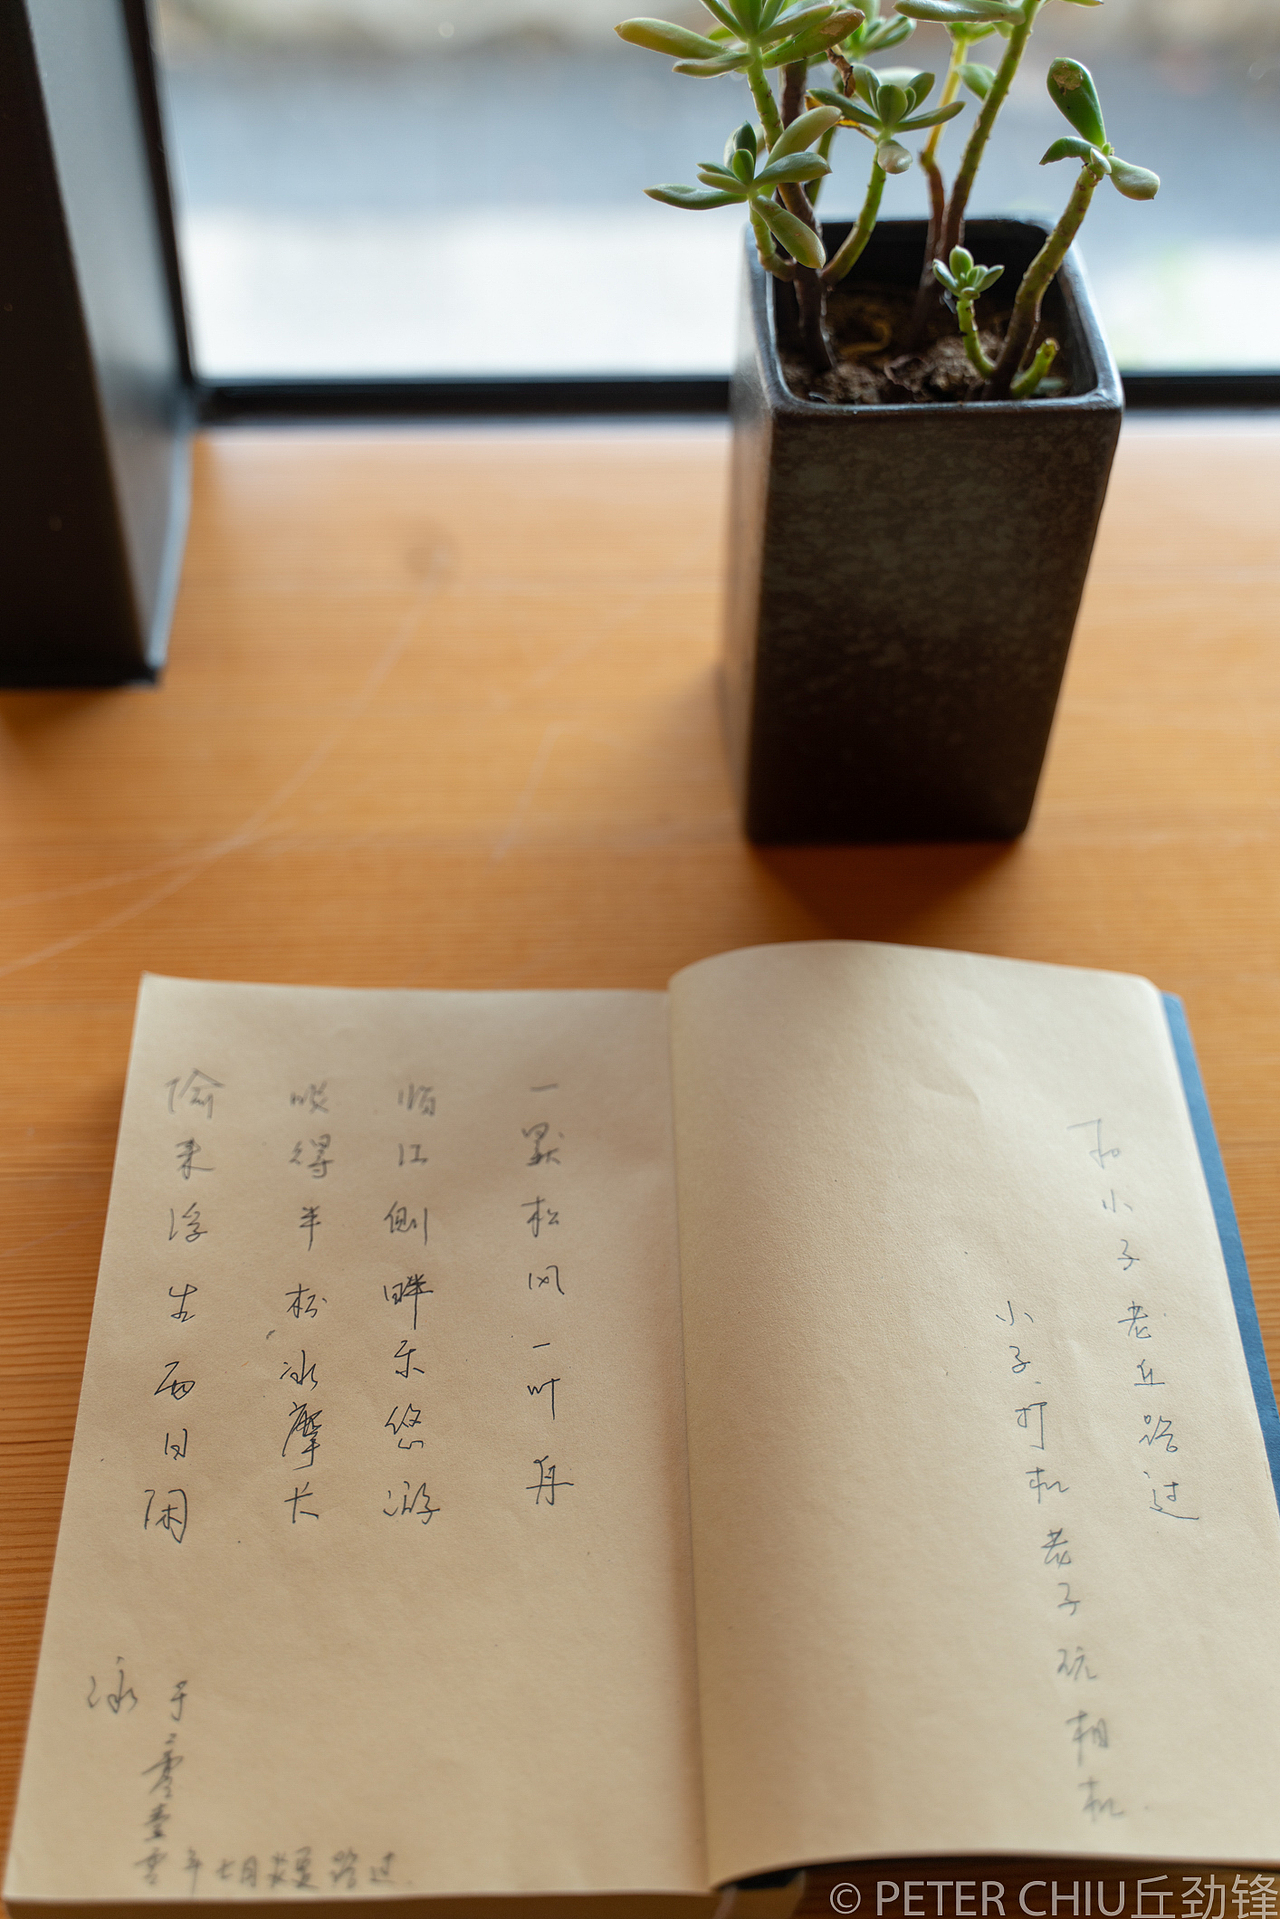 和小子老丘路过
小子打机老子玩相机
一默松风一叶舟
临江侧畔乐悠游
得半松冰摩长
偷来浮生两日闲
泳
于二零壹零年七月炎夏路过
© PETER CHIU丘劲锋